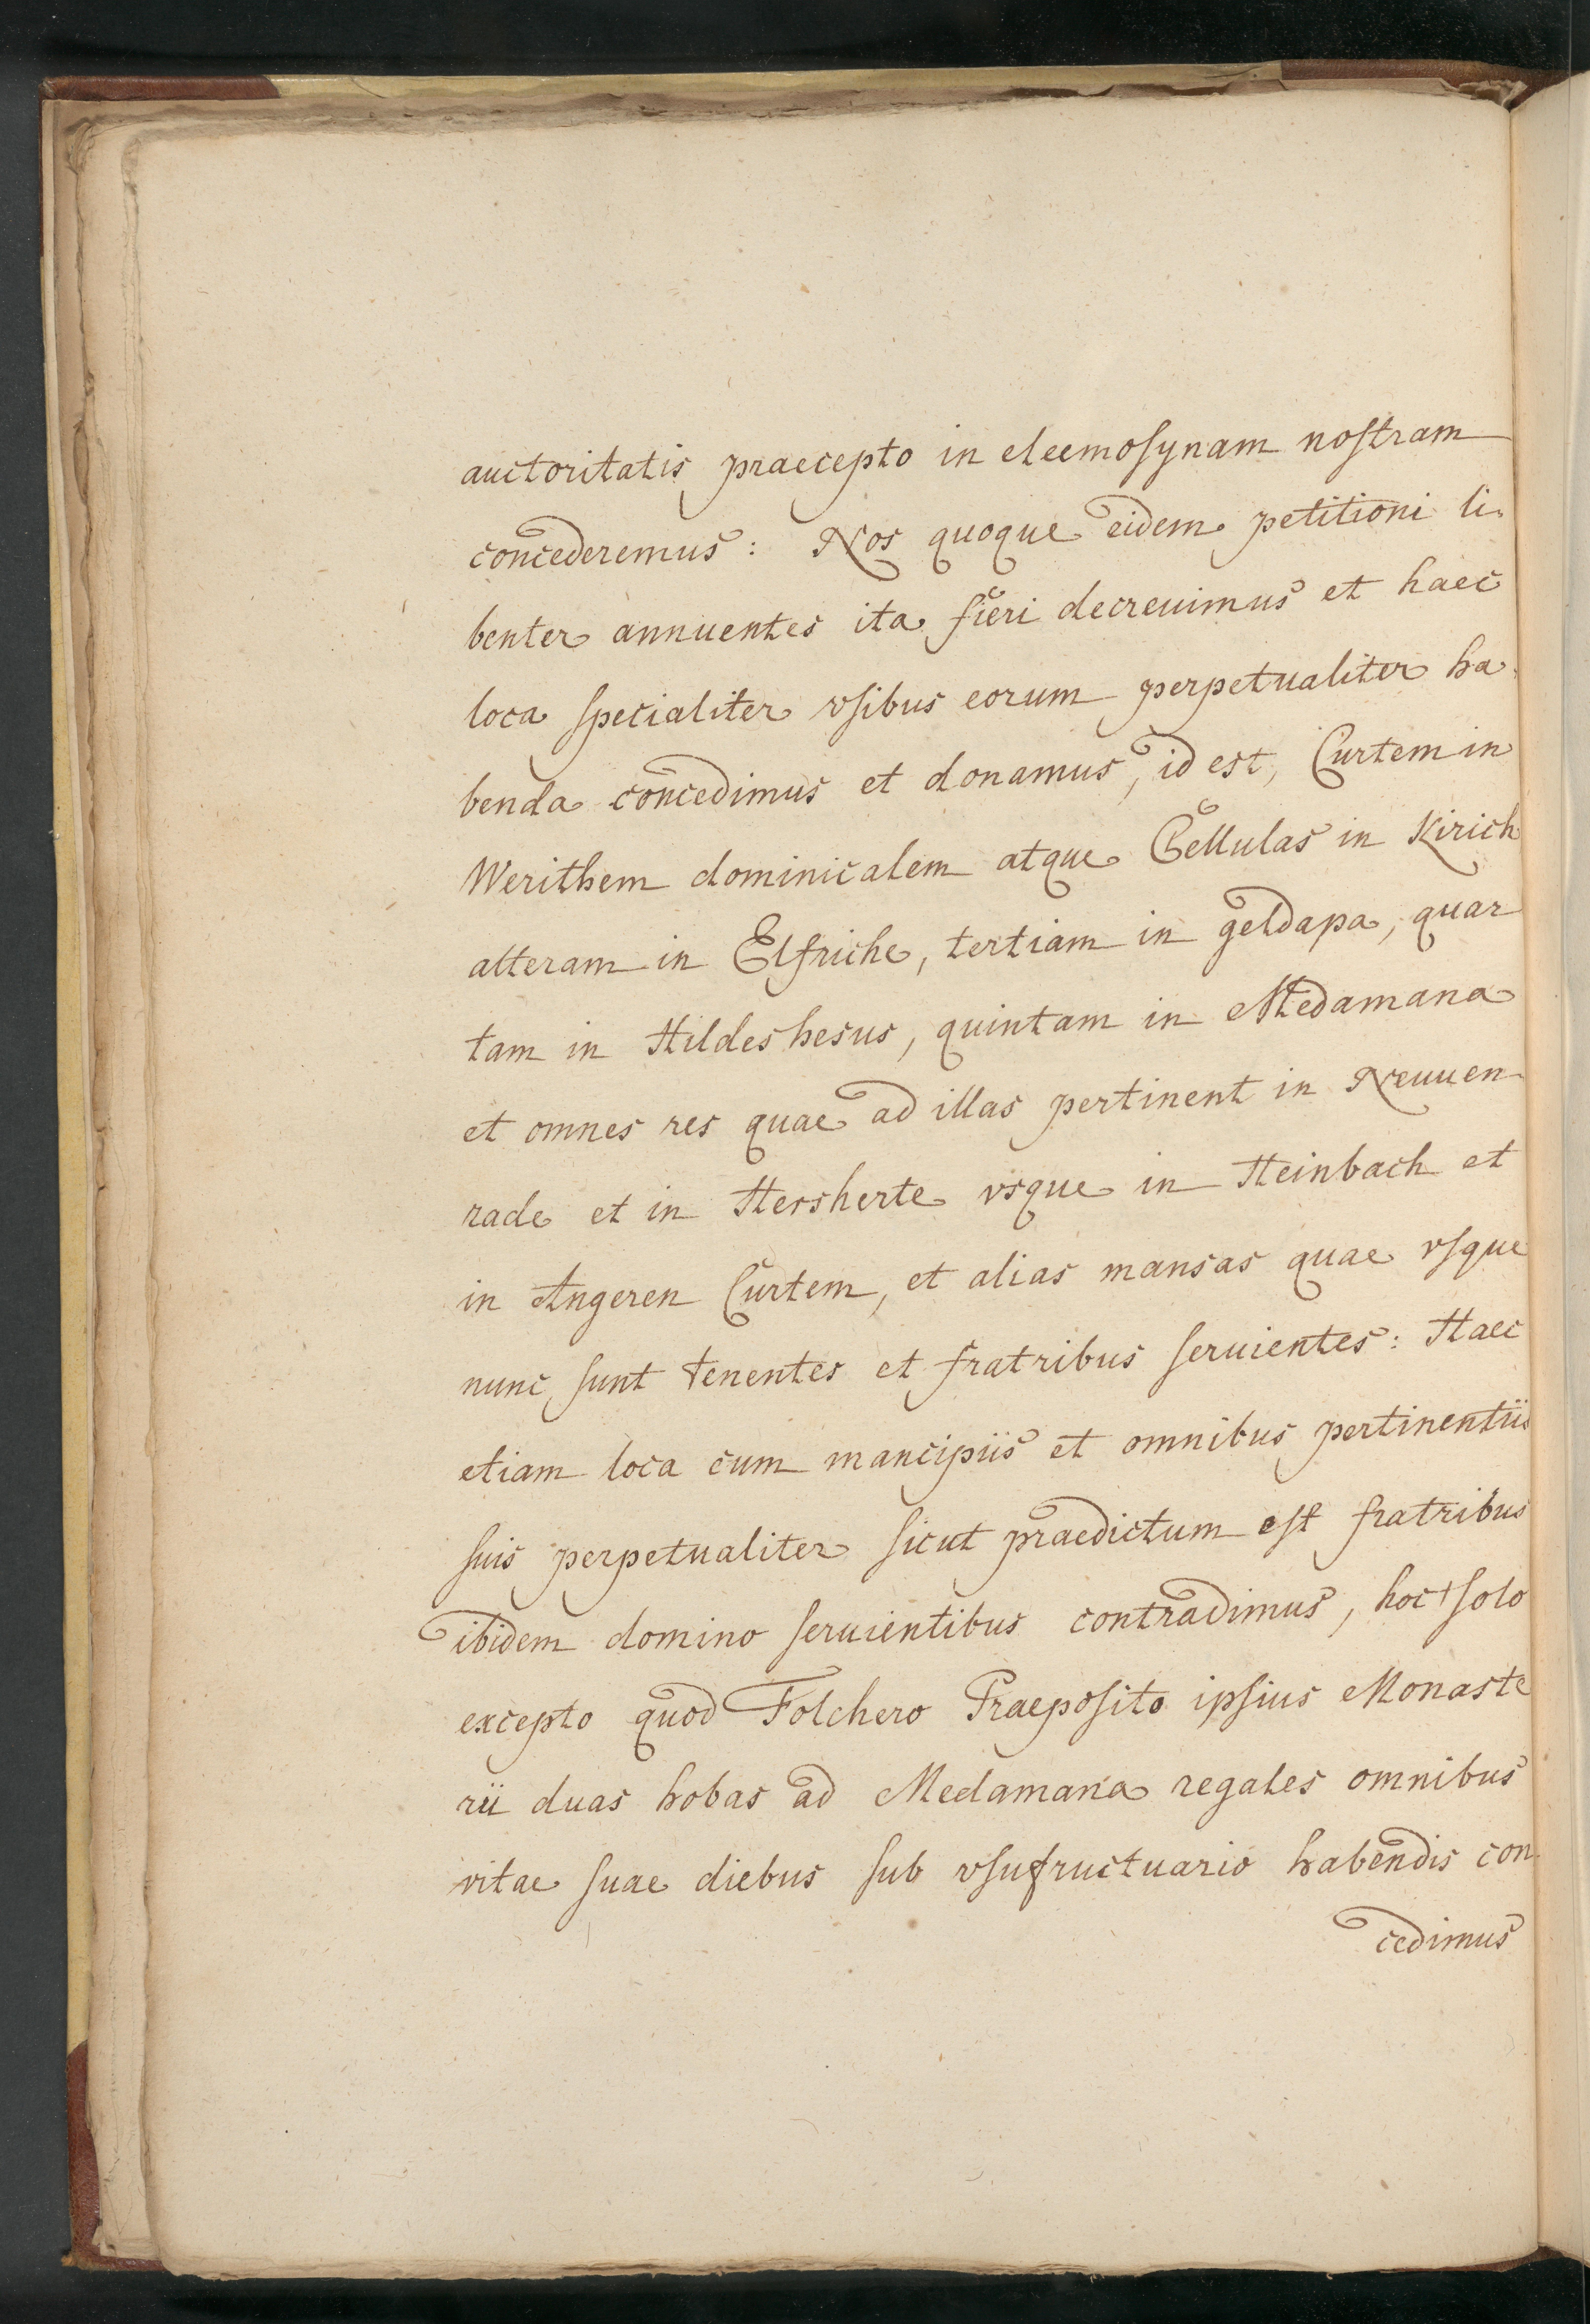 auctoritatis praecepto in eleemosynam nostram
concederemus: Nos quoque eidem petitioni li-
benter annuentes ita fieri decreuimus et haec
loca specialiter vsibus eorum perpetualiter ha-
benda concedimus et donamus, id est, Curtem in
Werithem dominicalem atque Cellulas in Kirich
alteram in Elfriche, tertiam in geldapa, quar
tam in Hildeshesus, quintam in Medamana
et omnes res quae ad illas pertinent in Neuuen-
rade et in Hersherte vsque in Heinbach et
in Angeren Curtem, et alias mansas quae vsque
nunc sunt tenentes et fratribus seruientes: Haec
etiam loca cum mancipiis et omnibus pertinentiis
suis perpetualiter sicut praedictum est fratribus
ibidem domino seruientibus contradimus, hoc solo
excepto quod Folchero Praeposito ipsius Monaste
rii duas hobas ad Medamana regales omnibus
vitae suae diebus sub vsufructuario habendis con-
cedimus